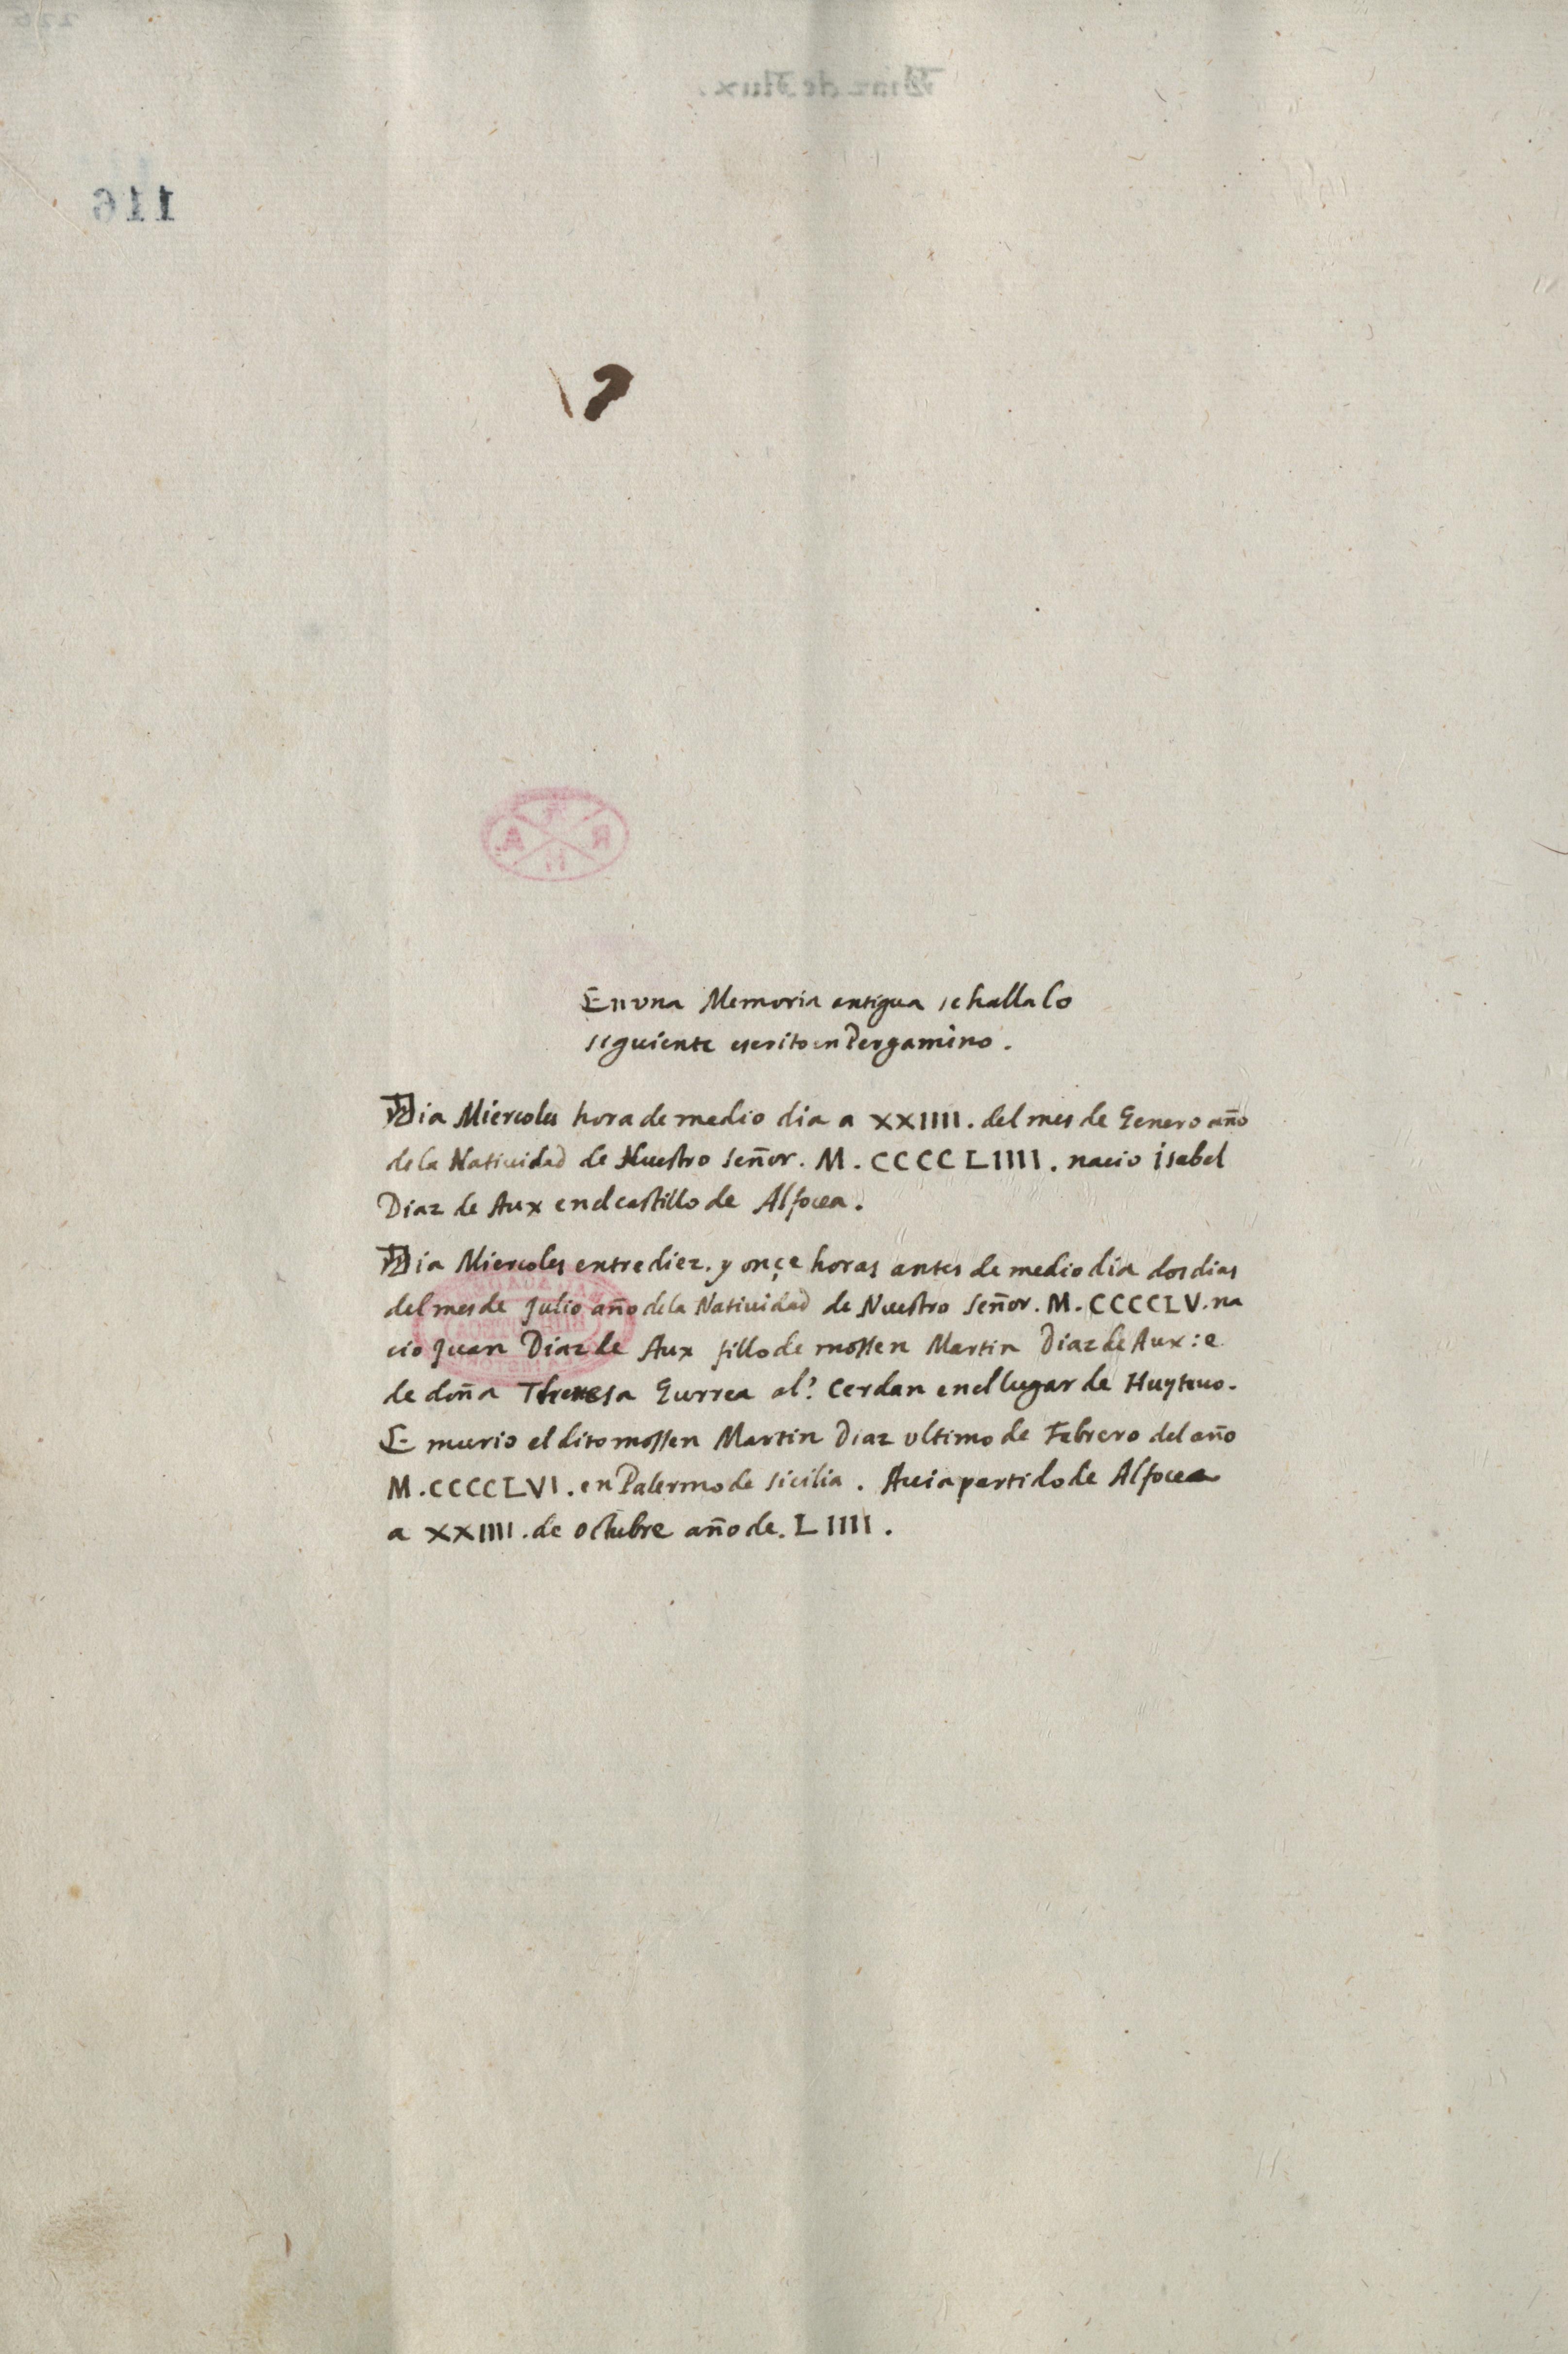 En vna Memoria antigua se halla lo
siguiente escrito en Pergamino.
Dia Miercoles hora de medio dia a XXIIII. del mes de Genero año
de la Natiuidad de Nuestro Señor. M. CCCC LIIII. nacio Isabel
Diaz de Aux en el castillo de Alfocea.
Dia Miercoles entre diez. y onçe horas antes de medio dia dos dias
del mes de Julio año de la Natiuidad de Nuestro Señor. M. CCCCLV. na
cio Juan Diaz de Aux fillo de mossen Martin Diaz de Aux: e
de doña Theresa Gurrea al.ˢ Cerdan en el lugar de Huyteuo.
E murio el dito mossen Martin Diaz vltimo de Febrero del año
M. CCCCLVI. en Palermo de Sicilia. Auia partido de Alfocea
a XXIIII. de octubre año de. LIIII.